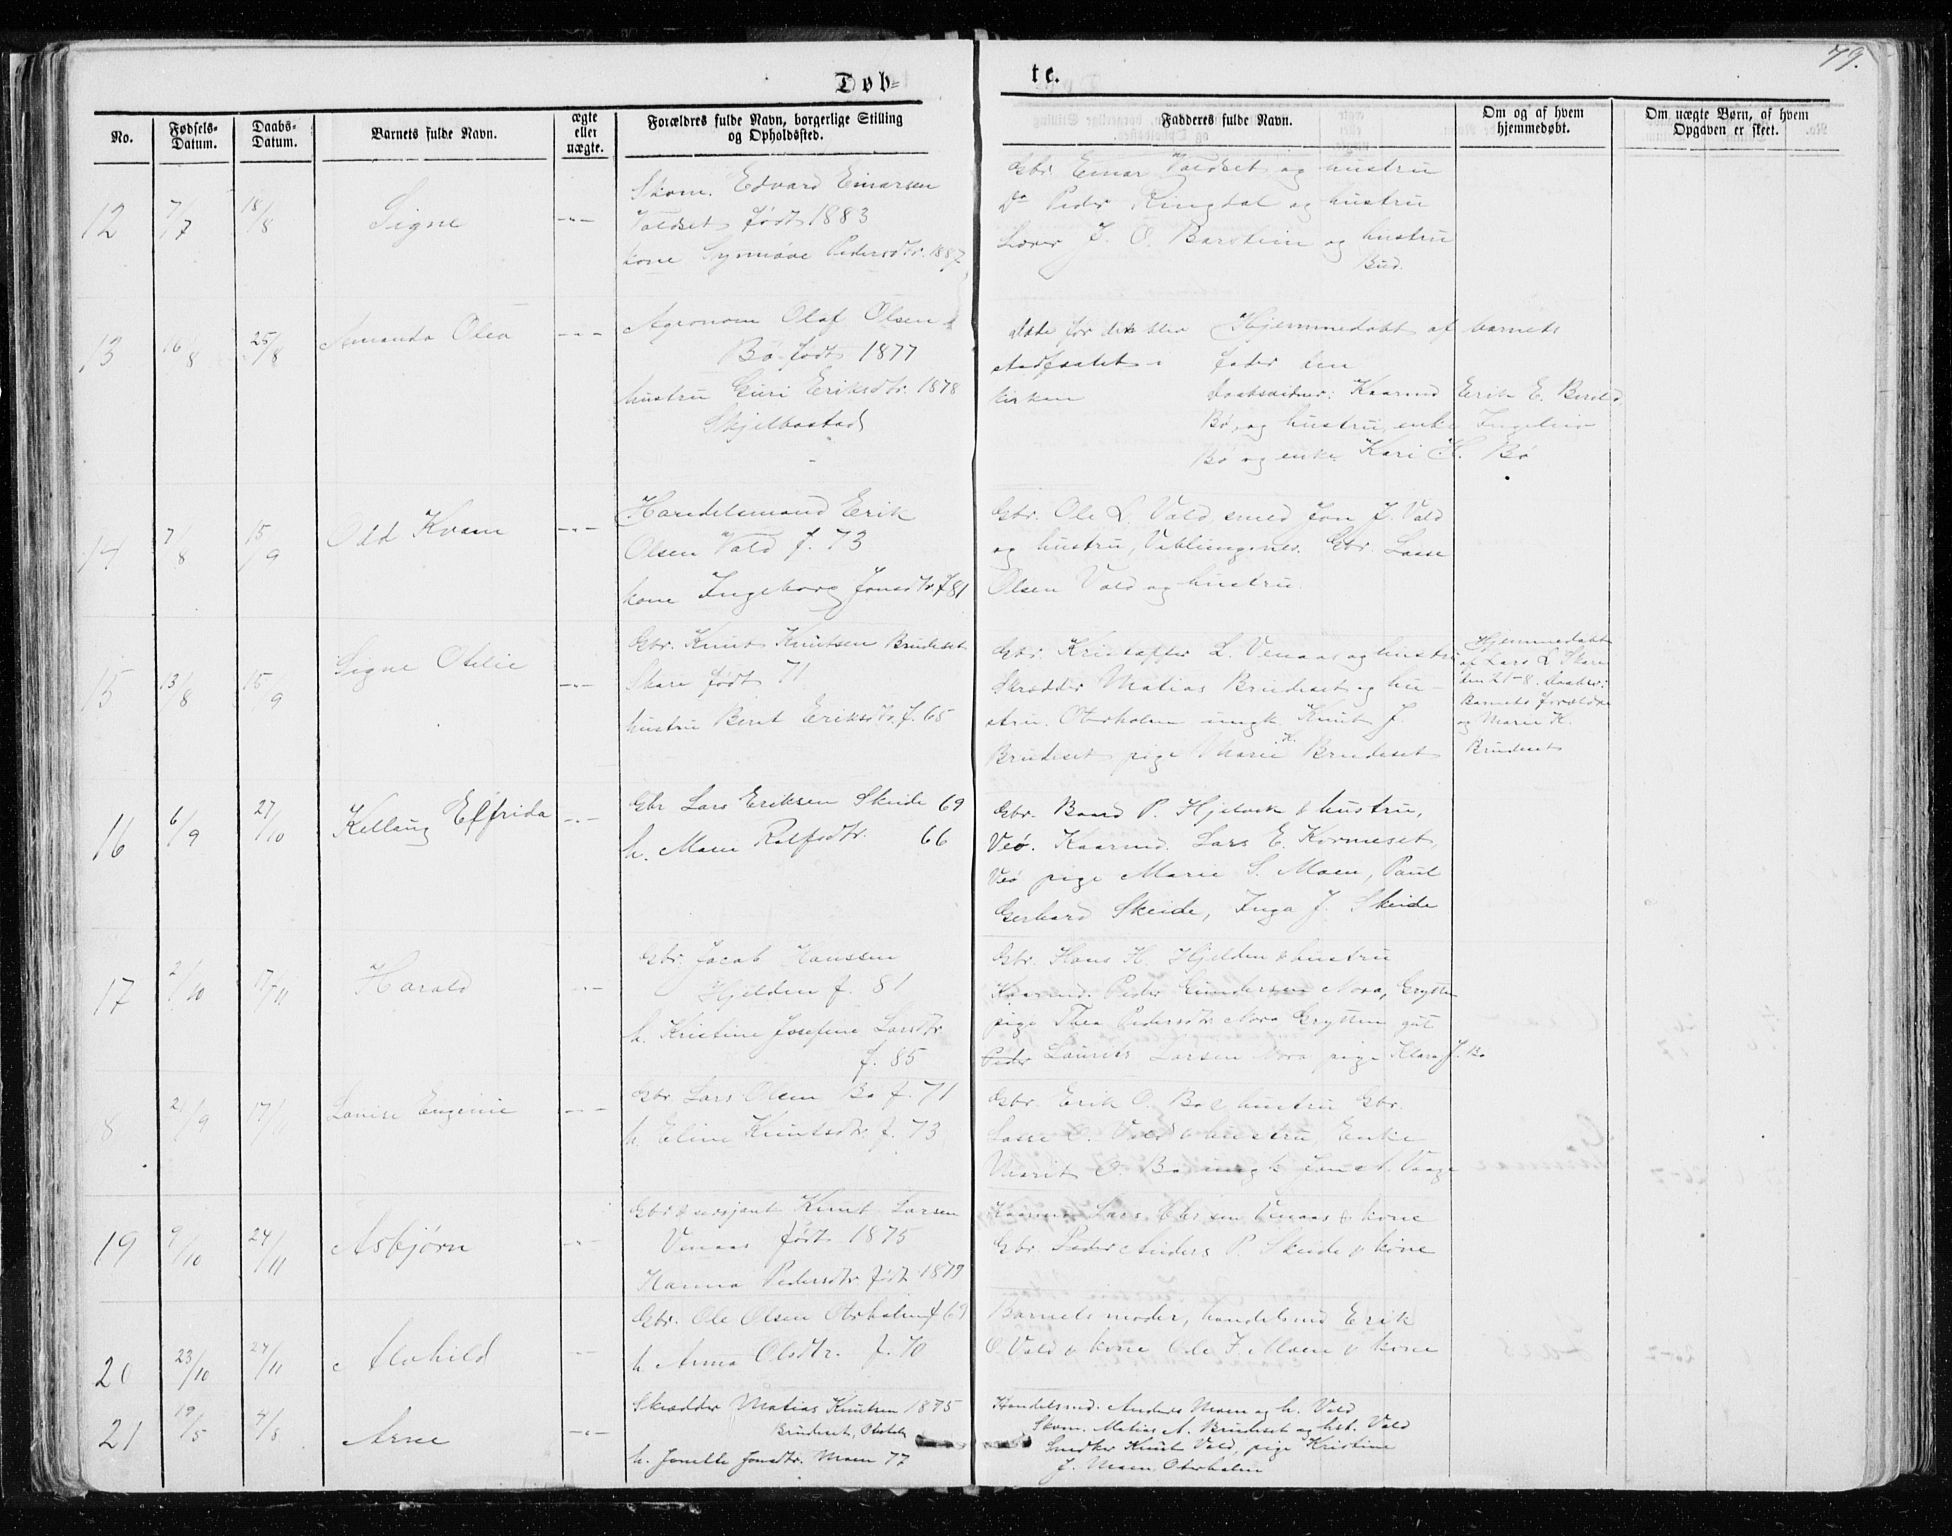 79.
Døb-
te.
No.
Fødsels-
Datum.
Daabs-
Datum.
Barnets fulde Navn.
ægte
eller
uægte.
Forældres fulde Navn, borgerlige Stilling
og Opholdssted.
Fadderes fulde Navn.
Om og af hvem
hjemmedøbt.
Om uægte Børn, af hvem
Opgaven er skeet.
12
7/7
18/8
Signe
-"-
Skom. Edvard Einarsen
Valdset født 1883
kone Synnöve Pedersdtr. 1887
Gbr. Einar Valdset og hustru
Do Peder Ringdal og hustru
Lærer J. O. Barstein og hustru
Bud.
13
16/8
25/8
Amanda Olea
-"-
Agronom Olaf Olsen
Bö født 1877
hustru Guri Eriksdtr. 1878
Skjelbostad
for den blev
stadfæstet i
kirken
Hjemmedøbt af barnets
fader den
Daabsvidner: Kaarmd Erik E.
Bö, og hustru, enke Ingeline
Bö og enke Kari H. Bö
14
7/8
15/9
Odd Kvam
-"-
Handelsmand Erik
Olsen Vold f. 73
kone Ingeborg Jonsdtr. f 81
Gbr. Ole L. Vold smed Jon J. Vold
og hustru, Veblungsnes. Gbr. Lasse
Olsen Vold og hustru.
15
13/8
15/9
Signe Otilie
-"-
Gbr. Knut Knutsen Brudeset
Skare født 71
hustru Berit Eriksdtr. f. 65
Gbr. Kristoffer L. Venaas og hustru
Skrædder Matias Brudeset og hu-
stru. Oterholm ungk. Knut J.
Brudeset pige Marie K Brudeset
Hjemmedøbt
af Lars L Skare
den 21-8. Daabsv:
Barnets forældre
og Marie K.
Brudeset
16
6/9
27/10
Kellaug Elfrida
-"-
Gbr Lars Eriksen Skeide 69
h. Maren Rolfsdtr. 66
Gbr. Baard P. Hjelvik & hustru,
Veö. Kaarmd. Lars E. Kormeset
Veö pige Marie S. Moen, Paul
Gerhard Skeide, Inga J. Skeide
17
2/10
17/11
Harald
-"-
Gbr. Jacob Hanssen
Hjelden f. 81
h. Kristine Josefine Larsdtr
f. 85
Gbr. Hans H. Hjelden & hustru
Kaarmd. Peder Gundersen Nora, Grytten
pige Thea Pedersdtr Nora Grytten gut
Peder Laurits Larsen Nora pige Klara J. Bö
8
2/9
17/11
Louise Eugenie
-"-
Gbr. Lars Olsen Bö f. 71
h. Eline Knutsdtr f. 73
Gbr. Erik O. Bö & hustru Gbr.
Lasse O. Vold & hustru, Enke
Marit O. Bö ungk. Jon A. Vaage
19
9/10
24/11
Asbjörn
-"-
Gbr & sersjant Knut Larsen
Venaas født 1875
Hanna Pedersdtr. født 1879
Kaarmd Lars Venaas & kone
Gbr. Peder Anders P. Skeide & kone
20
23/10
24/11
Alvhild
-"-
Gbr. Ole Olsen Oterholm f 69
h Anna Olsdtr. f. 70
Barnets moder, handelsmd Erik
O. Vold & kone Ole F. Moen & kone
21
19/5
4/8
Arne
-"-
Skrædder Matias Knutsen 1875
Brudeset,
h. Jonette Jonsdtr. Moen 77
Handelsmd. Anders Moen og h. Vold
Skom. Matias A. Brudeset og hst. Vold
Snedker Knut Vold, pige Kristine
J. Moen. Oterholm